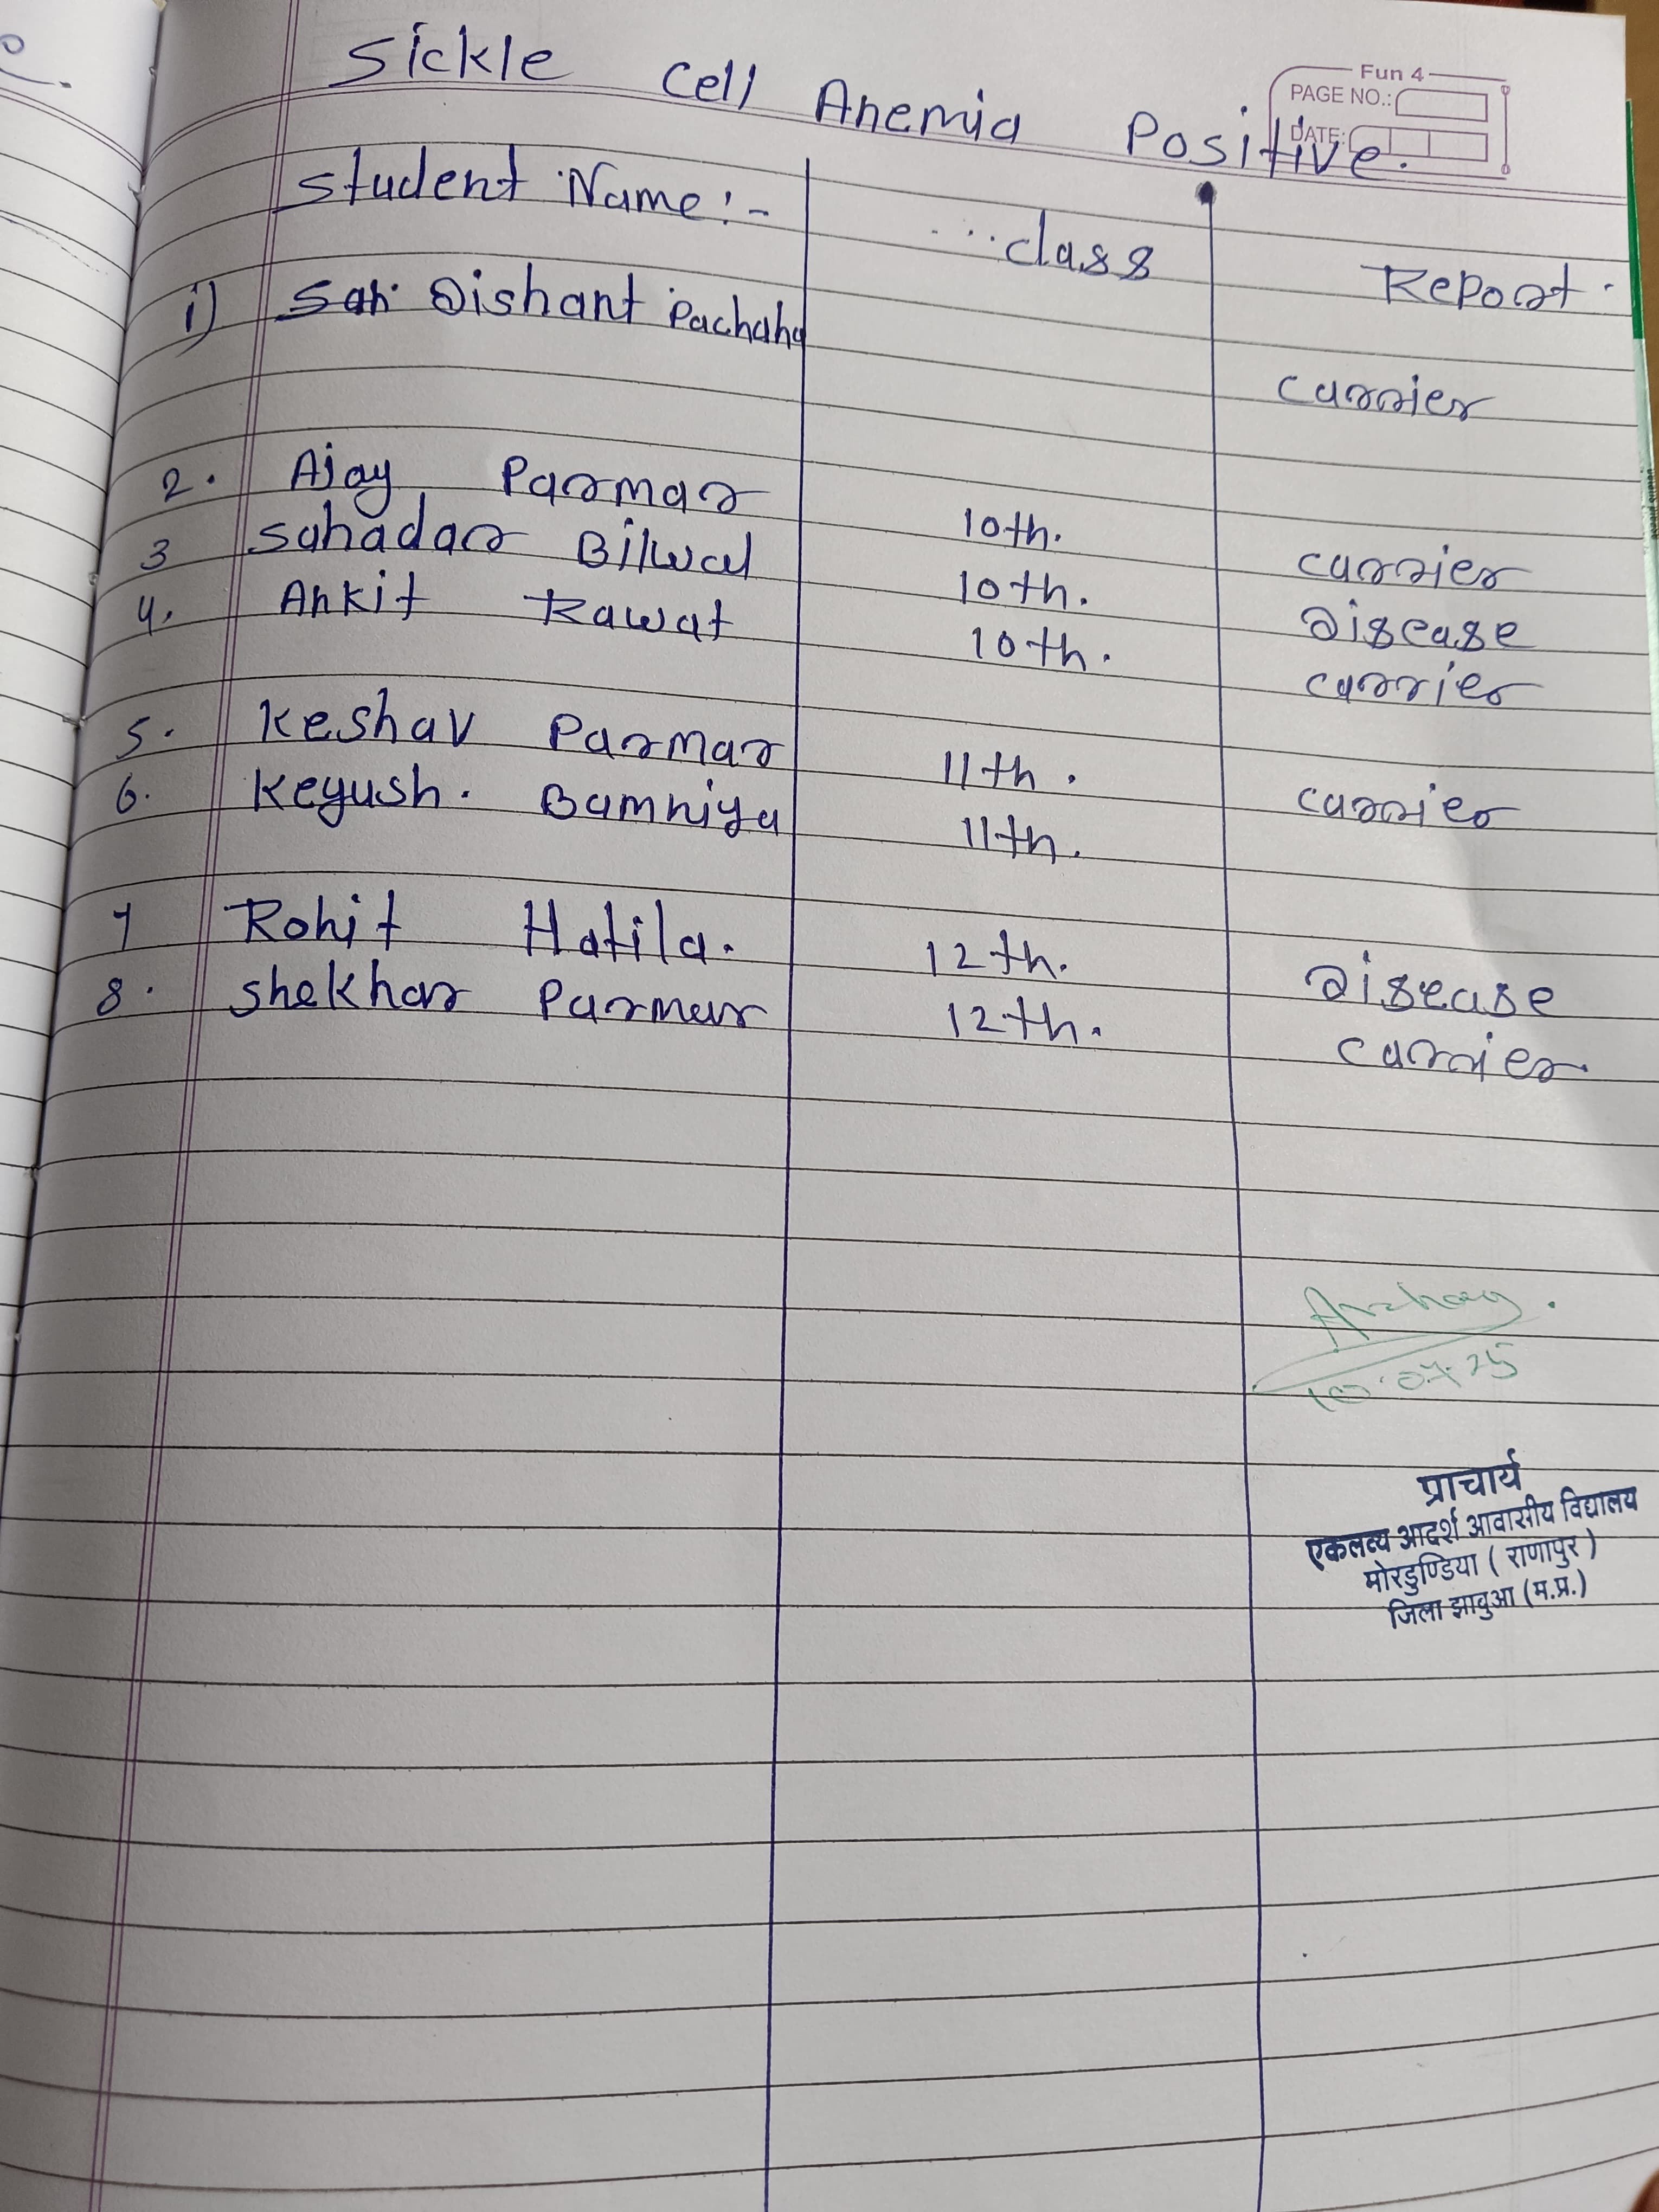 Sickle Cell Anemia Positive.
Fun 4
PAGE NO.:
DATE:
Student Name:- class Report.
1) Dishant Pachaha carrier
2. Ajay Parmar 10th. carrier
3 Sahadar Bilwal 10th. Disease
4. Ankit Rawat 10th. carrier
5. Keshav Parmar 11th. carrier
6. Keyush. Bamniya 11th.
7 Rohit Hatila. 12th. Disease
8. Shekhar Parmar 12th. carrier.
10.07.25
प्राचार्य
एकलव्य आदर्श आवासीय विद्यालय
मोरडुण्डिया ( राणापुर )
जिला झाबुआ (म.प्र.)